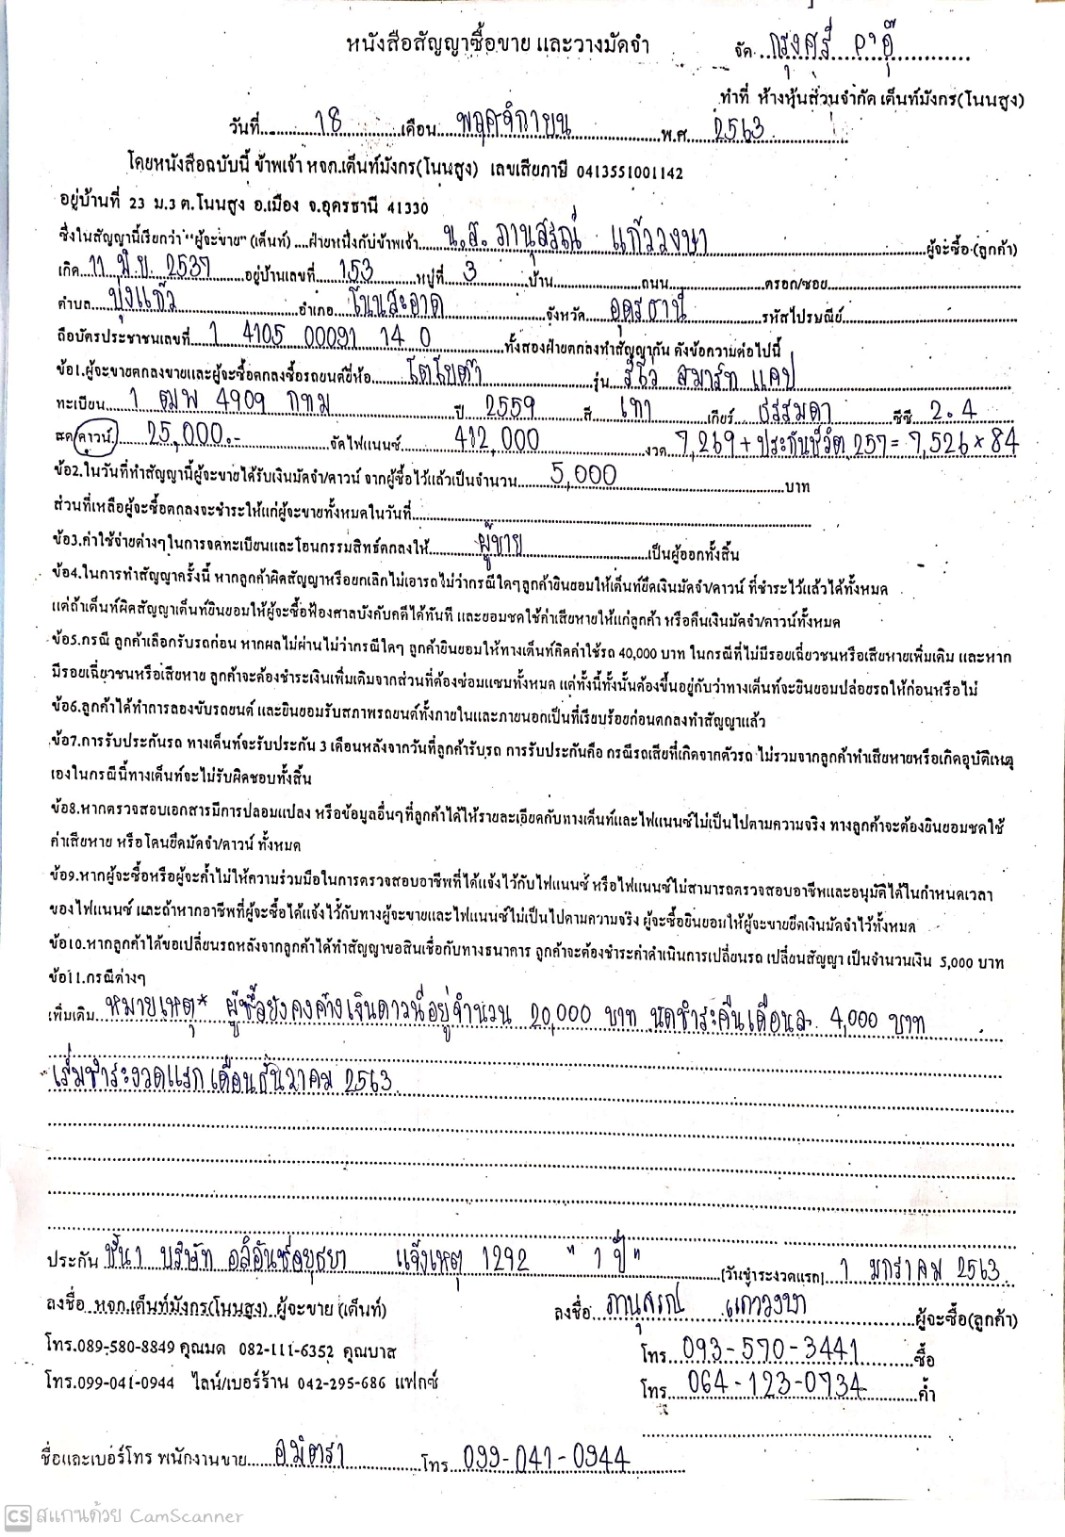 หนังสือสัญญาซื้อขาย และวางมัดจำ จัด กรุงศรี
ทำที่ ห้างหุ้นส่วนจำกัด เต็นท์มังกร(โนนสูง)
วันที่ 18 เดือน พฤศจิกายน พ.ศ 2563
โดยหนังสือฉบับนี้ ข้าพเจ้า หจก.เต็นท์มังกร(โนนสูง) เลขเสียภาษี 0413551001142
อยู่บ้านที่ 23 ม.3 ต.โนนสูง อ.เมือง จ.อุดรธานี 41330
ซึ่งในสัญญานี้เรียกว่า "ผู้จะขาย" (เต็นท์) ....ฝ่ายหนึ่งกับข้าพเจ้า น.ส. ภานุสรณ์ แก้ววงษา ผู้จะซื้อ (ลูกค้า)
เกิด 11 มิ.ย. 2537 อยู่บ้านเลขที่ 153 หมู่ที่ 3 บ้าน ถนน ตรอก/ซอย
ตำบล บุ่งแก้ว อำเภอ โนนสะอาด จังหวัด อุดรธานี รหัสไปรษณีย์
ถือบัตรประชาชนเลขที่ 1 4105 00091 14 0 ทั้งสองฝ่ายตกลงทำสัญญากัน ดังข้อความต่อไปนี้
ข้อ1.ผู้จะขายตกลงขายและผู้จะซื้อตกลงซื้อรถยนต์ยี่ห้อ โตโยต้า รุ่น รีโว่ สมาร์ท แคป
ทะเบียน 1 ฒพ 4909 กทม ปี 2559 สี เทา เกียร์ ธรรมดา ซีซี 2.4
สด/ดาวน์ 25,000.- จัดไฟแนนซ์ 412,000 งวด 7,269 + ประกันชีวิต 257 = 7,526 × 84
ข้อ2.ในวันที่ทำสัญญานี้ผู้จะขายได้รับเงินมัดจำ/ดาวน์ จากผู้ซื้อไว้แล้วเป็นจำนวน 5,000 บาท
ส่วนที่เหลือผู้จะซื้อตกลงจะชำระให้แก่ผู้จะขายทั้งหมดในวันที่
ข้อ3.ค่าใช้จ่ายต่างๆในการจดทะเบียนและโอนกรรมสิทธิ์ตกลงให้ ผู้ขาย เป็นผู้ออกทั้งสิ้น
ข้อ4.ในการทำสัญญาครั้งนี้ หากลูกค้าผิดสัญญาหรือยกเลิกไม่เอารถไม่ว่ากรณีใดๆลูกค้ายินยอมให้เต็นท์ยึดเงินมัดจำ/ดาวน์ ที่ชำระไว้แล้วได้ทั้งหมด
แต่ถ้าเต็นท์ผิดสัญญาเต็นท์ยินยอมให้ผู้จะซื้อฟ้องศาลบังคับคดีได้ทันที และยอมชดใช้ค่าเสียหายให้แก่ลูกค้า หรือคืนเงินมัดจำ/ดาวน์ทั้งหมด
ข้อ5.กรณี ลูกค้าเลือกรับรถก่อน หากผลไม่ผ่านไม่ว่ากรณีใดๆ ลูกค้ายินยอมให้ทางเต็นท์คิดค่าใช้รถ 40,000 บาท ในกรณีที่ไม่มีรอยเฉี่ยวชนหรือเสียหายเพิ่มเติม และหาก
มีรอยเฉี่ยวชนหรือเสียหาย ลูกค้าจะต้องชำระเงินเพิ่มเติมจากส่วนที่ต้องซ่อมแซมทั้งหมด แต่ทั้งนี้ทั้งนั้นต้องขึ้นอยู่กับว่าทางเต็นท์จะยินยอมปล่อยรถให้ก่อนหรือไม่
ข้อ6.ลูกค้าได้ทำการลองขับรถยนต์ และยินยอมรับสภาพรถยนต์ทั้งภายในและภายนอกเป็นที่เรียบร้อยก่อนตกลงทำสัญญาแล้ว
ข้อ7.การรับประกันรถ ทางเต็นท์จะรับประกัน 3 เดือนหลังจากวันที่ลูกค้ารับรถ การรับประกันคือ กรณีรถเสียที่เกิดจากตัวรถ ไม่รวมจากลูกค้าทำเสียหายหรือเกิดอุบัติเหตุ
เองในกรณีนี้ทางเต็นท์จะไม่รับผิดชอบทั้งสิ้น
ข้อ8.หากตรวจสอบเอกสารมีการปลอมแปลง หรือข้อมูลอื่นๆที่ลูกค้าได้ให้รายละเอียดกับทางเต็นท์และไฟแนนซ์ไม่เป็นไปตามความจริง ทางลูกค้าจะต้องยินยอมชดใช้
ค่าเสียหาย หรือโดนยึดมัดจำ/ดาวน์ ทั้งหมด
ข้อ9.หากผู้จะซื้อหรือผู้จะค้ำไม่ให้ความร่วมมือในการตรวจสอบอาชีพที่ได้แจ้งไว้กับไฟแนนซ์ หรือไฟแนนซ์ไม่สามารถตรวจสอบอาชีพและอนุมัติได้ในกำหนดเวลา
ของไฟแนนซ์ และถ้าหากอาชีพที่ผู้จะซื้อได้แจ้งไว้กับทางผู้จะขายและไฟแนนซ์ไม่เป็นไปตามความจริง ผู้จะซื้อยินยอมให้ผู้จะขายยึดเงินมัดจำไว้ทั้งหมด
ข้อ10.หากลูกค้าได้ขอเปลี่ยนรถหลังจากลูกค้าได้ทำสัญญาขอสินเชื่อกับทางธนาคาร ลูกค้าจะต้องชำระค่าดำเนินการเปลี่ยนรถ เปลี่ยนสัญญา เป็นจำนวนเงิน 5,000 บาท
ข้อ11.กรณีต่างๆ
เพิ่มเติม หมายเหตุ* ผู้ซื้อยังคงค้างเงินดาวน์อยู่จำนวน 20,000 บาท นัดชำระคืนเดือนละ 4,000 บาท
เริ่มชำระงวดแรก เดือนธันวาคม 2563
ประกัน ชั้น1 บริษัท อลิอันซ์อยุธยา แจ้งเหตุ 1292 " 1 ปี " (วันชำระงวดแรก) 1 มกราคม 2563
ลงชื่อ หจก.เต็นท์มังกร(โนนสูง) ผู้จะขาย (เต็นท์) ลงชื่อ ภานุสรณ์ แก้ววงษา ผู้จะซื้อ(ลูกค้า)
โทร.089-580-8849 คุณมด 082-111-6352 คุณบาส โทร 093-570-3441 ซื้อ
โทร.099-041-0944 ไลน์/เบอร์ร้าน 042-295-686 แฟกซ์ โทร 064-123-0734 ค้ำ
ชื่อและเบอร์โทร พนักงานขาย อ.มิตรา โทร 099-041-0944
CS สแกนด้วย CamScanner